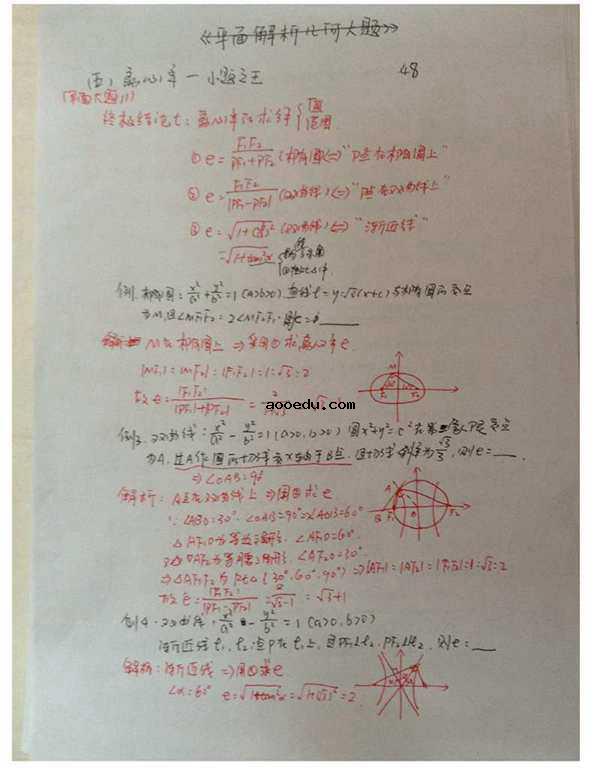 《平面解析几何大题》
(五) 离心率 — 小题之王 48
(平面大题11)
终极结论七: 离心率的求解 { 值 范围
① e = F₁F₂ / (PF₁+PF₂) (椭圆) <=> "P点在椭圆上"
② e = F₁F₂ / |PF₁-PF₂| (双曲线) <=> "P点在双曲线上"
③ e = √(1+(b/a)²) (双曲线) <=> "渐近线"
= √(1+tan²α)
例. 椭圆: x²/a² + y²/b² = 1 (a>b>0) 直线l = y=√3(x+c) 与椭圆的交点
为M, 且∠MF₁F₂ = 2∠MF₂F₁. 则e = ____
解析: M在椭圆上 => 采用①求离心率e.
|MF₁| : |MF₂| : |F₁F₂| = 1:√3:2
故 e = |F₁F₂| / (|PF₁|+|PF₂|) = 2/(1+√3)
aooedu.com
例3. 双曲线: x²/a² - y²/b² = 1 (a>0, b>0) 圆x²+y²=c² 在第二象限交点
为A, 过A作圆的切线与x轴交于B点, 且切线斜率为√3/3, 则e = ____.
=> ∠OAB = 90°
解析: A点在双曲线上 => 用②求e.
∵ ∠ABO=30°. ∠OAB=90° => ∠AOB=60°
△AF₁O为等边三角形. ∠AF₁O=60°.
△OAF₂为等腰三角形. ∠AF₂O=30°.
=> △AF₁F₂为Rt△ (30°. 60°. 90°) => |AF₁| : |AF₂| : |F₁F₂| = 1:√3:2
故 e = |F₁F₂| / |PF₁-PF₂| = 2/(√3-1) = √3+1
例4. 双曲线: x²/a² - y²/b² = 1 (a>0, b>0)
渐近线l₁, l₂, 点P在l₁上, 且PF₁⊥l₂, PF₂∥l₂, 则e = __
解析: 渐近线 => 用③求e
∠α=60° e = √(1+tan²α) = √(1+(√3)²) = 2.